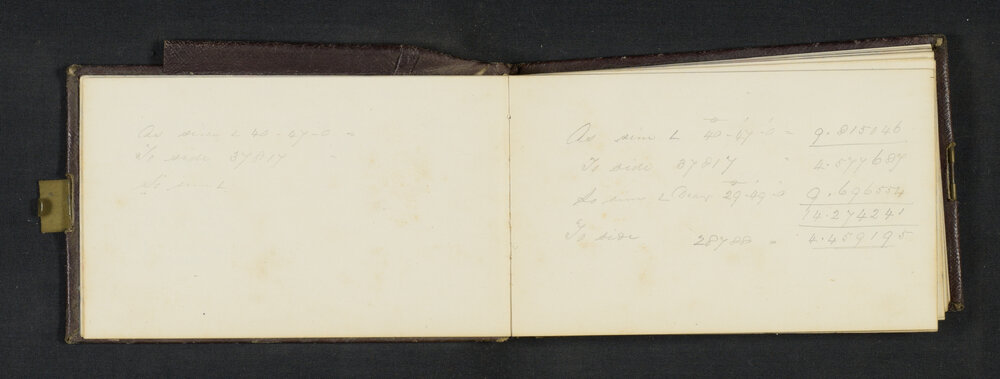 As sine L 40-47-0 =
To side 37817
So sine L
As sine L 40-47-0 = 9.815046
To side 37817 " 4.577687
So sine L 29-49-0 9.696554
14.274241
To side 28788 = 4.459195